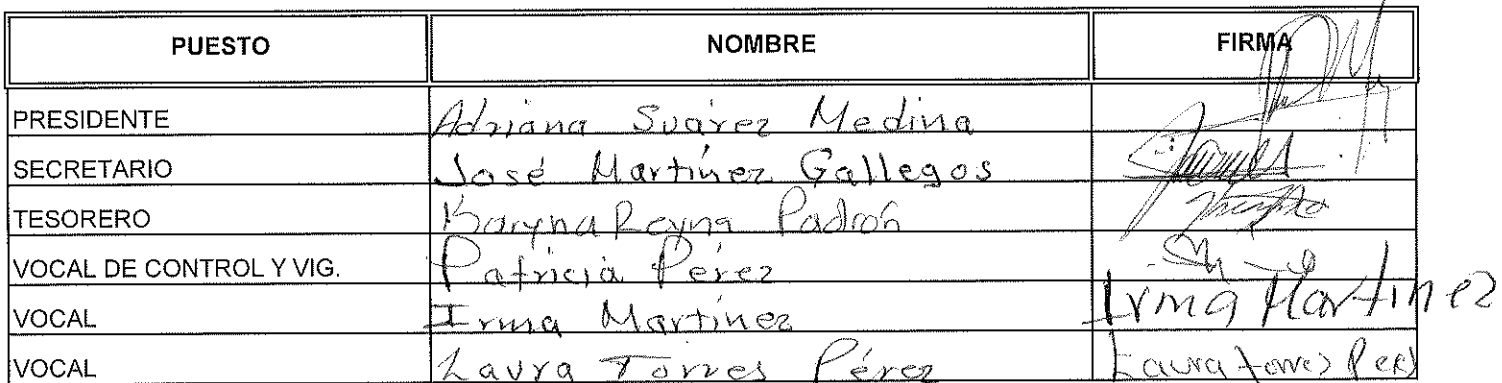 PUESTO NOMBRE FIRMA
PRESIDENTE Adriana Suárez Medina
SECRETARIO José Martínez Gallegos
TESORERO Karyna Reyna Padrón
VOCAL DE CONTROL Y VIG. Patricia Pérez
VOCAL Irma Martínez Irma Martinez
VOCAL Laura Torres Pérez Laura Torres